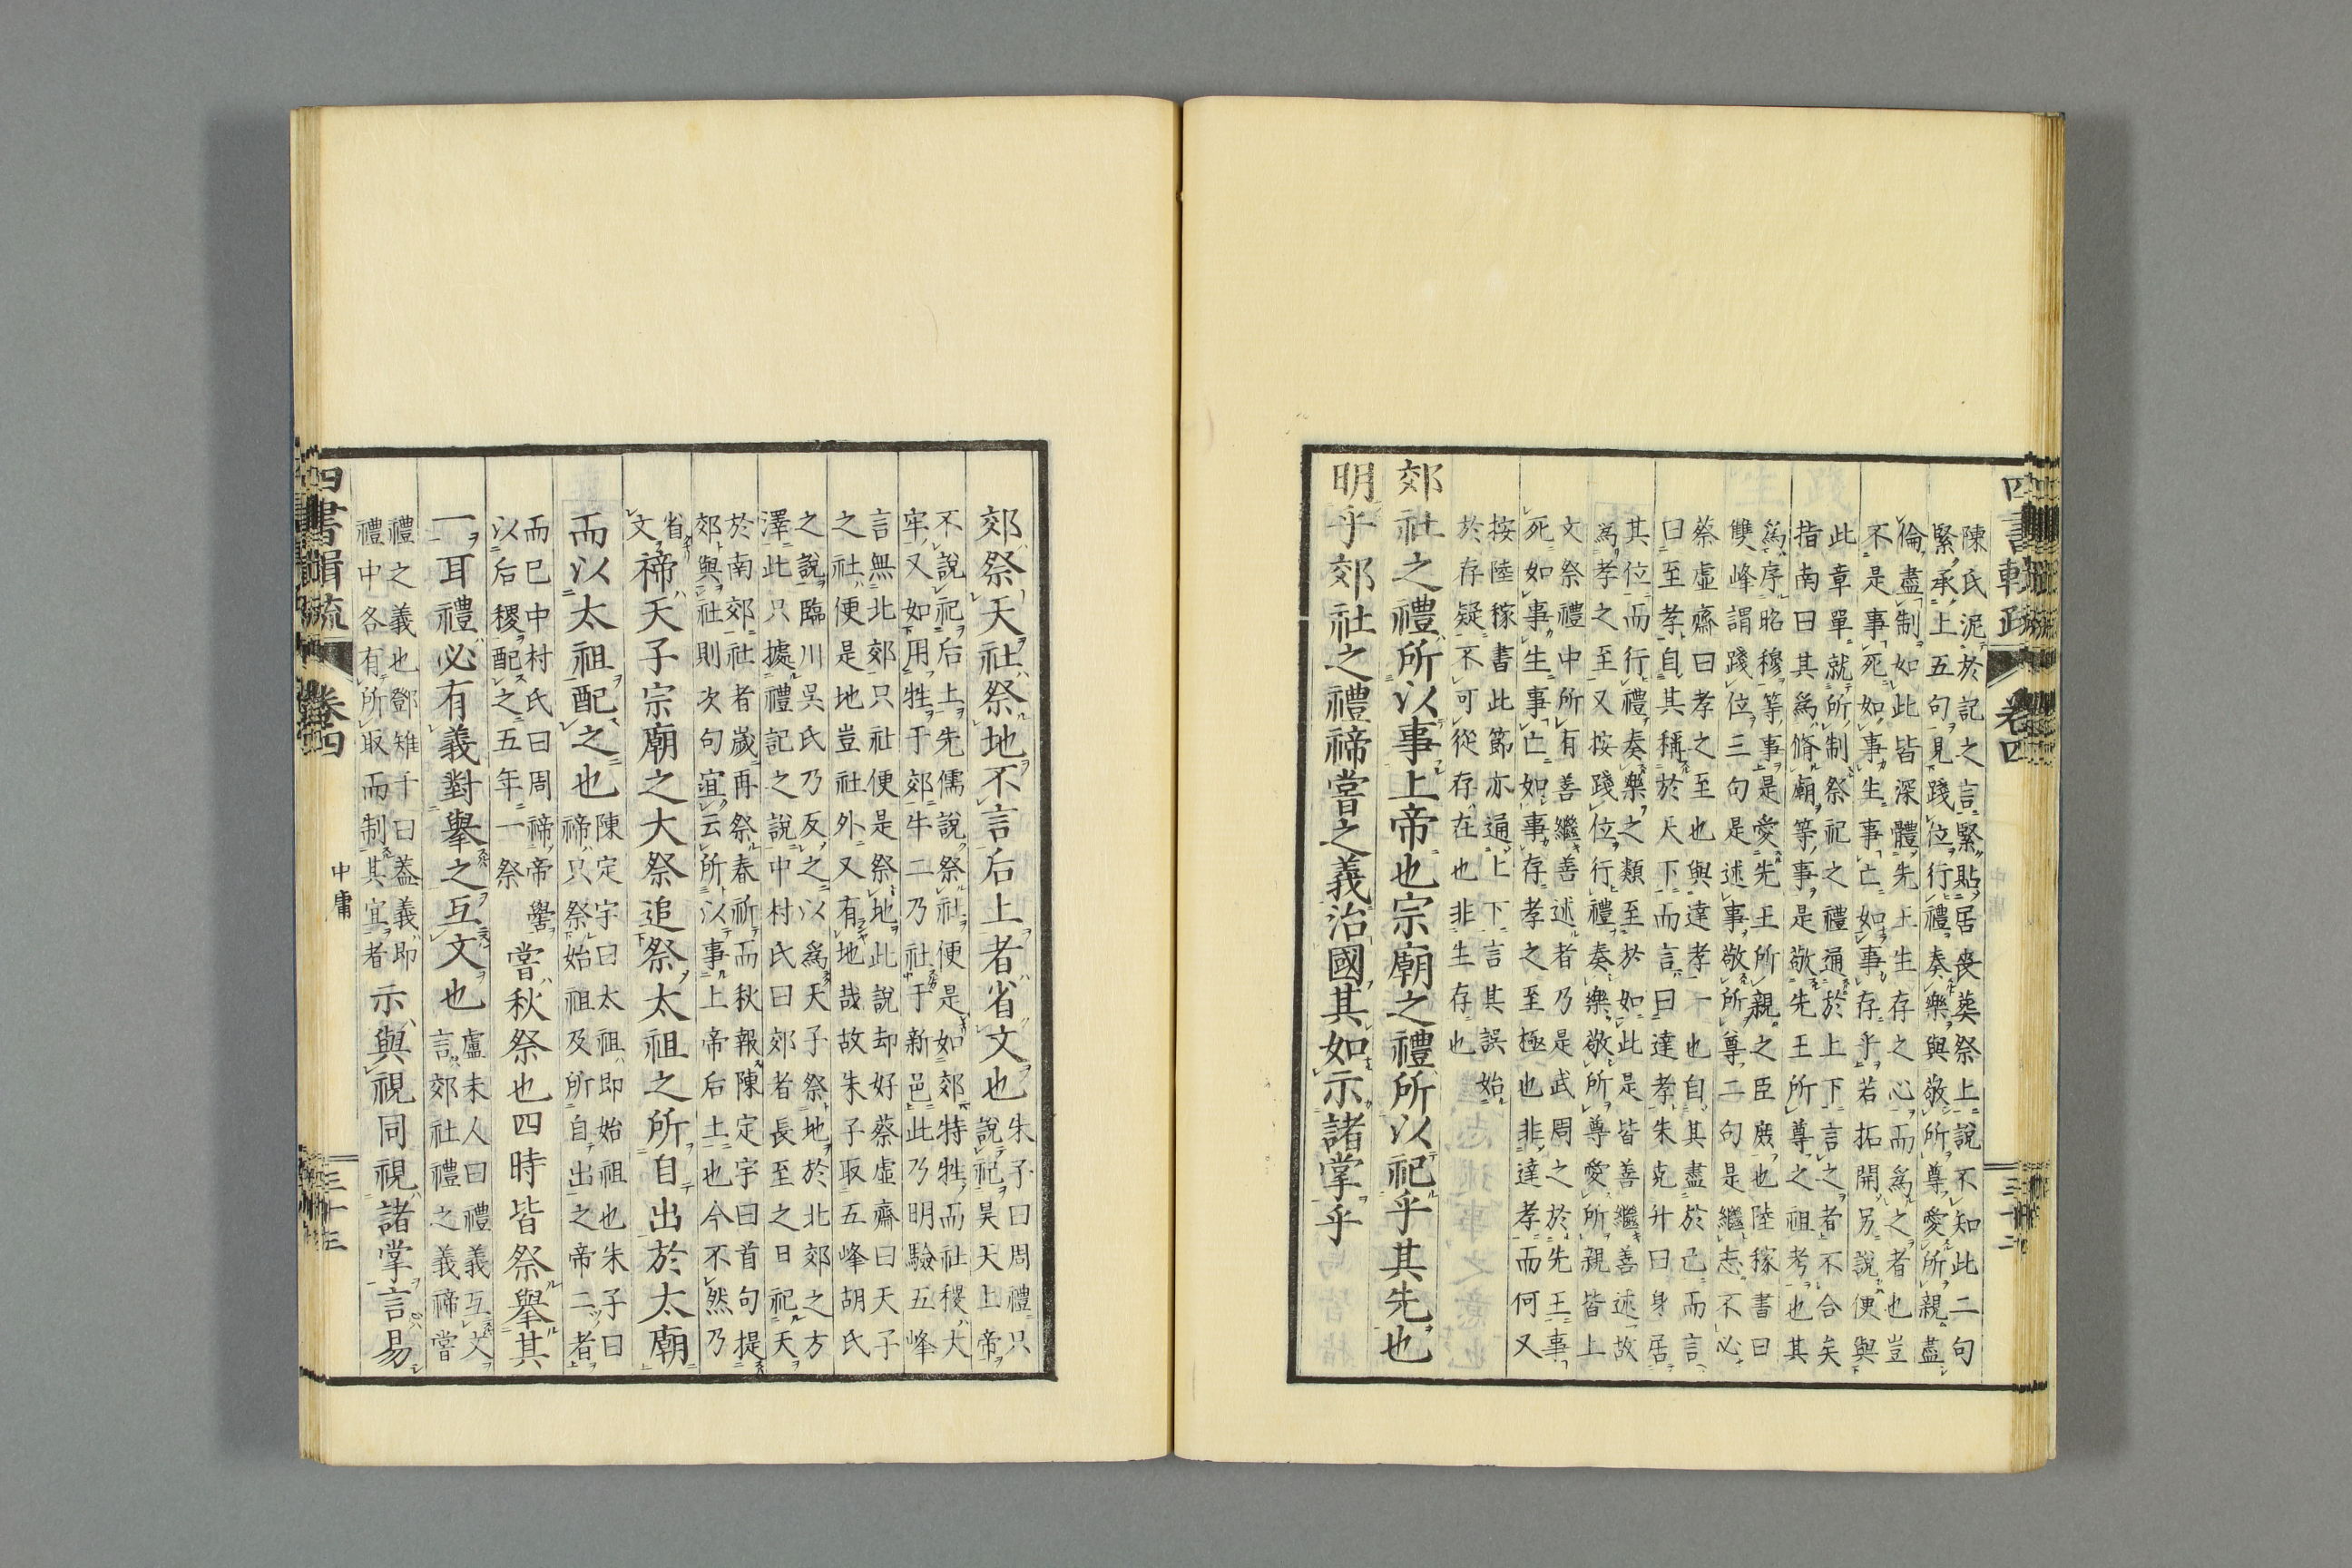 陳氏泥於記之言緊貼居喪葬祭上說不知此二句
緊承上五句見踐位行禮奏樂與敬所尊愛所親盡
倫盡制如此皆深體先王生存之心而爲之者也豈
不是事死如事生事亡如事存乎若拓開另說便與
此章單就所制祭祀之禮通於上下言之者不合矣
指南曰其爲脩廟等事是敬先王所尊之祖考也其
爲序昭穆等事是愛先王所親之臣庶也陸稼書曰
雙峰謂踐位三句是述事敬所尊二句是繼志不必
蔡虛齋曰孝之至也與達孝一也自其盡於己而言
曰至孝自其稱於天下而言曰達孝朱克升曰身居
其位而行禮奏樂之類至於如此是皆善繼善述故
爲孝之至又按踐位行禮奏樂敬所尊愛所親皆上
文祭禮中所有善繼善述者乃是武周之於先王事
死如事生事亡如事存孝之至極也非達孝而何又
按陸稼書此節亦通上下言其誤始
於存疑不可從存在也非生存也
郊社之禮所以事上帝也宗廟之禮所以祀乎其先也
明乎郊社之禮禘嘗之義治國其如示諸掌乎
四書輯疏
卷四
三十二
郊祭天社祭地不言后土者省文也
朱子曰周禮只
說祀昊天上帝
不說祀后土先儒說祭社便是如郊特牲而社稷大
牢又如用牲于郊牛二乃社于新邑此乃明驗五峰
言無北郊只社便是祭地此說却好蔡虛齋曰天子
之社便是地豈社外又有地哉故朱子取五峰胡氏
之說臨川吳氏乃反之以爲天子祭地於北郊之方
澤此只據禮記之說中村氏曰郊者長至之日祀天
於南郊社者歲再祭春祈而秋報陳定宇曰首句提
郊與社則次句宜云所以事上帝后土也今不然乃
省
文
禘天子宗廟之大祭追祭太祖之所自出於太廟
而以太祖配之也
陳定宇曰太祖即始祖也朱子曰
禘只祭始祖及所自出之帝二者
而已中村氏曰周禘帝嚳
以后稷配之五年一祭
嘗秋祭也四時皆祭擧其
一耳禮必有義對擧之互文也
盧未人曰禮義互文
言郊社禮之義禘嘗
禮之義也鄧雉千曰蓋義即
禮中各有所取而制其宜者
示與視同視諸掌言易
四書輯疏
卷四
中庸
三十三